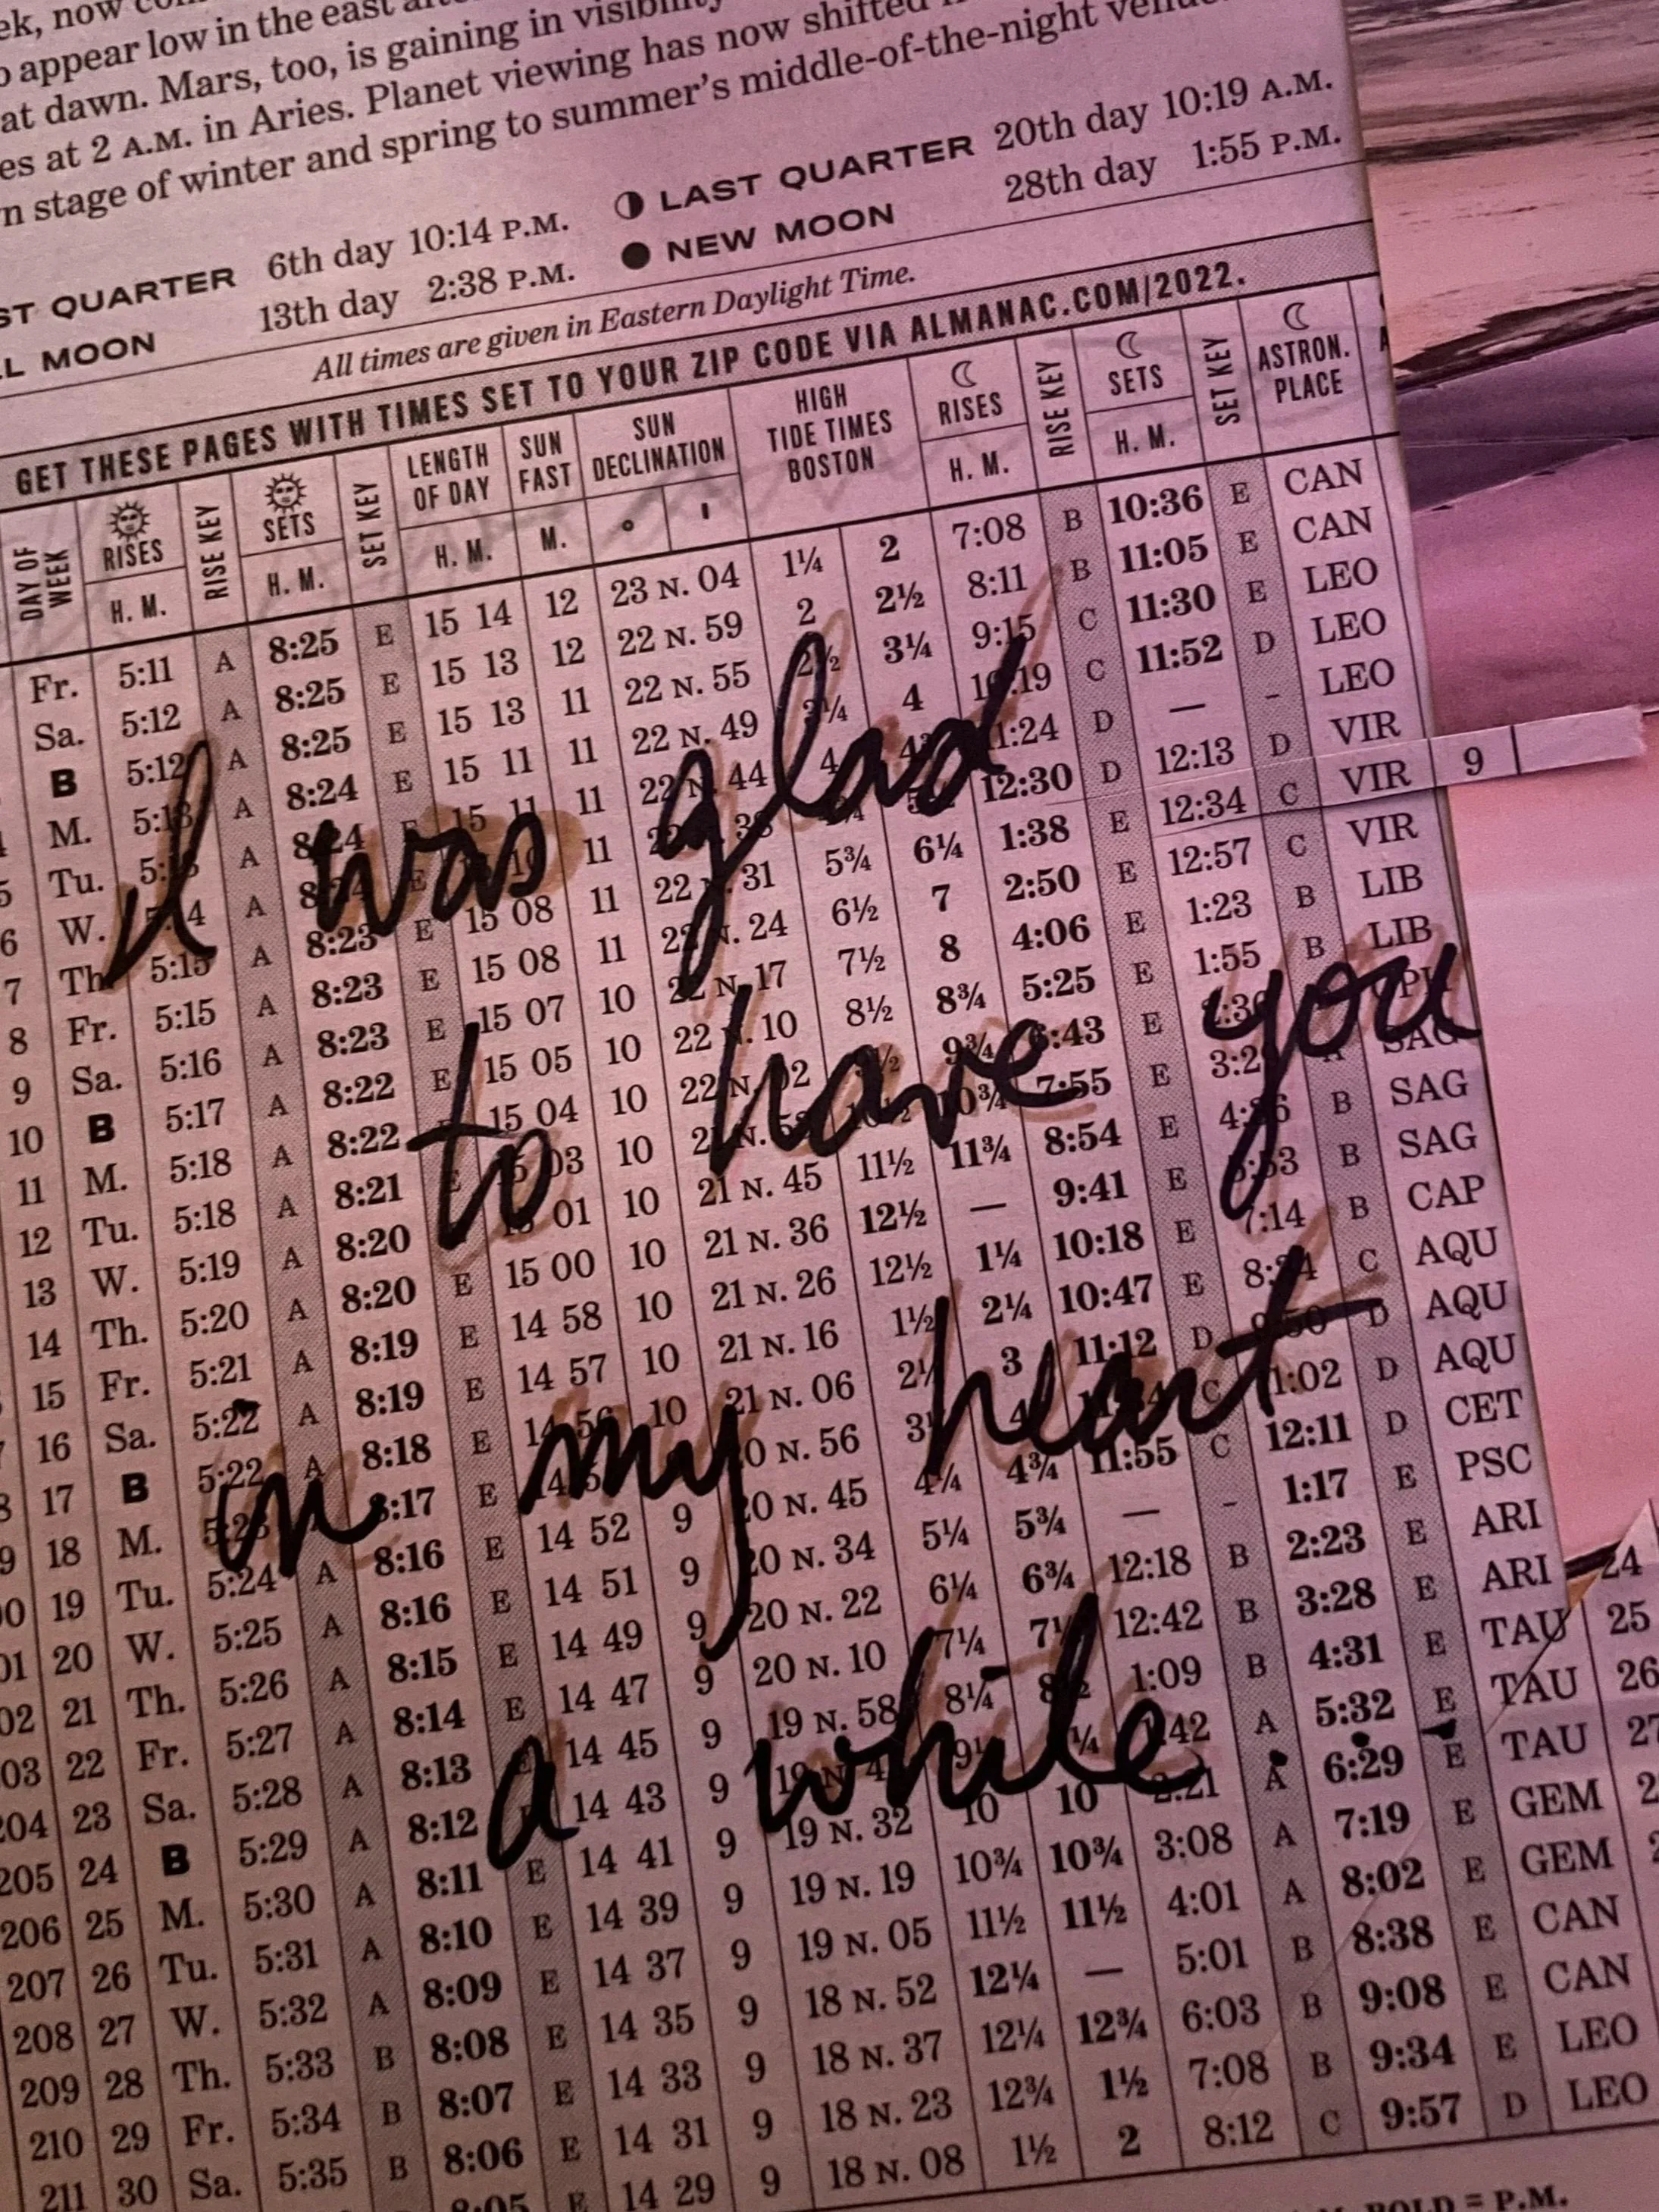 appear low in the east
at dawn. Mars, too, is gaining in visibility
es at 2 A.M. in Aries. Planet viewing has now shifted
n stage of winter and spring to summer's middle-of-the-night
ST QUARTER 6th day 10:14 P.M. LAST QUARTER 20th day 10:19 A.M.
LL MOON 13th day 2:38 P.M. NEW MOON 28th day 1:55 P.M.
All times are given in Eastern Daylight Time.
GET THESE PAGES WITH TIMES SET TO YOUR ZIP CODE VIA ALMANAC.COM/2022.
DAY OF WEEK RISES H. M. RISE KEY SETS H. M. SET KEY LENGTH OF DAY H. M. SUN FAST M. SUN DECLINATION ° ' HIGH TIDE TIMES BOSTON RISES H. M. RISE KEY SETS H. M. SET KEY ASTRON. PLACE
Fr. 5:11 A 8:25 E 15 14 12 23 N. 04 1¼ 2 7:08 B 10:36 E CAN
Sa. 5:12 A 8:25 E 15 13 12 22 N. 59 2 2½ 8:11 B 11:05 E CAN
B 5:12 A 8:25 E 15 13 11 22 N. 55 2½ 3¼ 9:15 C 11:30 E LEO
M. 5:13 A 8:24 E 15 11 11 22 N. 49 3¼ 4 10:19 C 11:52 D LEO
5 Tu. 5:13 A 8:24 E 15 11 11 22 N. 44 4 11:24 D — - LEO
6 W. 5:14 A 8:24 E 15 10 11 22 N. 38 12:30 D 12:13 D VIR
7 Th. 5:15 A 8:23 E 15 08 11 22 N. 31 5¾ 6¼ 1:38 E 12:34 C VIR 9
8 Fr. 5:15 A 8:23 E 15 08 11 22 N. 24 6½ 7 2:50 E 12:57 C VIR
9 Sa. 5:16 A 8:23 E 15 07 10 22 N. 17 7½ 8 4:06 E 1:23 B LIB
10 B 5:17 A 8:22 E 15 05 10 22 N. 10 8½ 8¾ 5:25 E 1:55 B LIB
11 M. 5:18 A 8:22 15 04 10 22 N. 02 9½ 9¾ 6:43 E 2:36
12 Tu. 5:18 A 8:21 E 15 03 10 21 N. 10½ 10¾ 7:55 E 3:29 A SAG
13 W. 5:19 A 8:20 15 01 10 21 N. 45 11½ 11¾ 8:54 E 4:36 B SAG
14 Th. 5:20 A 8:20 E 15 00 10 21 N. 36 12½ — 9:41 E 5:53 B SAG
15 Fr. 5:21 A 8:19 E 14 58 10 21 N. 26 12½ 1¼ 10:18 E 7:14 B CAP
16 Sa. 5:22 A 8:19 E 14 57 10 21 N. 16 1½ 2¼ 10:47 E 8:34 C AQU
17 B 5:22 A 8:18 E 14 56 10 21 N. 06 3 11:12 D 9:50 D AQU
18 M. 5:23 8:17 E 14 20 N. 56 4 11:34 C 11:02 D AQU
19 Tu. 5:24 A 8:16 E 14 52 9 20 N. 45 4¼ 4¾ 11:55 C 12:11 D CET
20 W. 5:25 A 8:16 E 14 51 9 20 N. 34 5¼ 5¾ — - 1:17 E PSC
21 Th. 5:26 A 8:15 E 14 49 9 20 N. 22 6¼ 6¾ 12:18 B 2:23 E ARI
22 Fr. 5:27 A 8:14 E 14 47 9 20 N. 10 7¼ 12:42 B 3:28 E ARI
204 23 Sa. 5:28 A 8:13 14 45 9 19 N. 58 8¼ 8½ 1:09 B 4:31 E TAU
205 24 B 5:29 A 8:12 14 43 9 19 N. 1:42 A 5:32 E TAU
206 25 M. 5:30 A 8:11 E 14 41 9 19 N. 32 10 10 2:21 A 6:29 E TAU
207 26 Tu. 5:31 A 8:10 E 14 39 9 19 N. 19 10¾ 10¾ 3:08 A 7:19 E GEM
208 27 W. 5:32 A 8:09 E 14 37 9 19 N. 05 11½ 11½ 4:01 A 8:02 E GEM
209 28 Th. 5:33 B 8:08 E 14 35 9 18 N. 52 12¼ — 5:01 B 8:38 E CAN
210 29 Fr. 5:34 B 8:07 E 14 33 9 18 N. 37 12¼ 12¾ 6:03 B 9:08 E CAN
211 30 Sa. 5:35 B 8:06 E 14 31 9 18 N. 23 12¾ 1½ 7:08 B 9:34 E LEO
8:05 E 14 29 9 18 N. 08 1½ 2 8:12 C 9:57 D LEO
24
25
26
27
BOLD = P.M.
I was glad
to have you
in my heart
a while